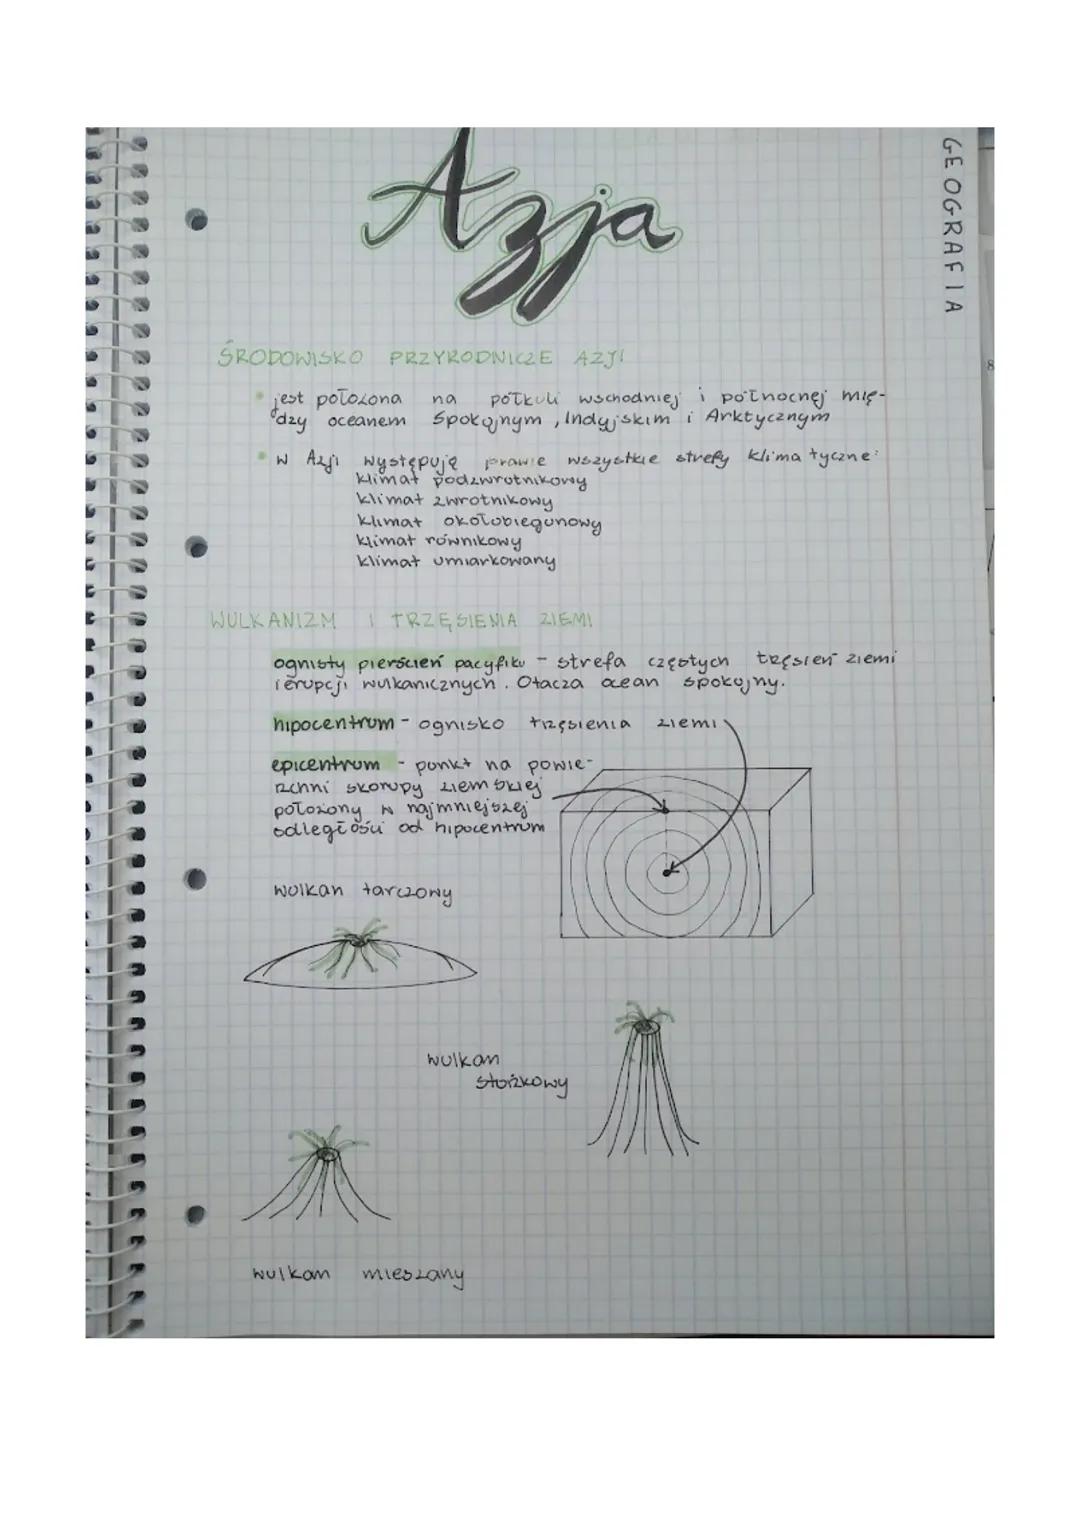 Azja
GEOGRAFIA
ŚRODOWISKO PRZYRODNICZE AZJI
• jest położona na półkuli wschodniej i północnej mię-
dzy oceanem Spokojnym, Indyjskim i Arktycznym
• W Azji występują prawie wszystkie strefy klimatyczne:
klimat podzwrotnikowy
klimat zwrotnikowy
klimat okołobiegunowy
klimat równikowy
klimat umiarkowany
WULKANIZM I TRZĘSIENIA ZIEMI
ognisty pierścień pacyfiku - strefa częstych trzęsień ziemi
i erupcji wulkanicznych. Otacza ocean spokojny.
hipocentrum - ognisko trzęsienia ziemi
epicentrum - punkt na powie-
rzchni skorupy ziemskiej
położony w najmniejszej
odległości od hipocentrum
wulkan tarczowy
wulkan
stożkowy
wulkan mieszany
8